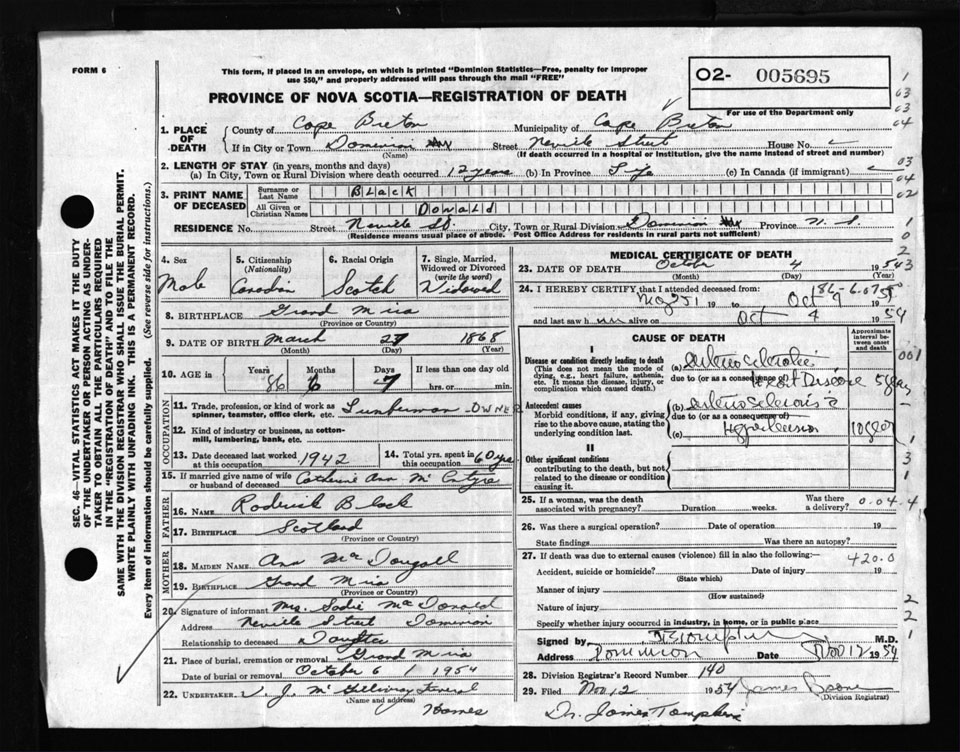 FORM 6
This form, if placed in an envelope, on which is printed "Dominion Statistics—Free, penalty for improper
use $50," and properly addressed will pass through the mail "FREE"
02- 005695
For use of the Department only
PROVINCE OF NOVA SCOTIA—REGISTRATION OF DEATH
1. PLACE OF DEATH
County of Cape Breton Municipality of Cape Breton
If in City or Town Dominion Street Neville Street House No.
(Name) (If death occurred in a hospital or institution, give the name instead of street and number)
2. LENGTH OF STAY (in years, months and days)
(a) In City, Town or Rural Division where death occurred 12 years (b) In Province (c) In Canada (if immigrant)
3. PRINT NAME OF DECEASED
Surname or Last Name BLACK
All Given or Christian Names Donald
RESIDENCE No. Street Neville St. City, Town or Rural Division Dominion Province N.S.
(Residence means usual place of abode. Post Office Address for residents in rural parts not sufficient)
4. Sex Male
5. Citizenship (Nationality) Canadian
6. Racial Origin Scotch
7. Single, Married, Widowed or Divorced (write the word) Widowed
8. BIRTHPLACE Grand Mira
(Province or Country)
9. DATE OF BIRTH March 27 1868
(Month) (Day) (Year)
10. AGE in Years 86 Months 6 Days 7 If less than one day
hrs. or min.
OCCUPATION
11. Trade, profession, or kind of work as spinner, teamster, office clerk, etc. Lumberman OWNER
12. Kind of industry or business, as cotton-mill, lumbering, bank, etc.
13. Date deceased last worked at this occupation 1942
14. Total yrs. spent in this occupation 60 yrs
15. If married give name of wife or husband of deceased Catherine Ann McIntyre
FATHER
16. NAME Roderick Black
17. BIRTHPLACE Scotland
(Province or Country)
MOTHER
18. MAIDEN NAME Ann MacDougall
19. BIRTHPLACE Grand Mira
(Province or Country)
20. Signature of informant Mrs. Sadie MacDonald
Address Neville Street Dominion
Relationship to deceased Daughter
21. Place of burial, cremation or removal Grand Mira
Date of burial or removal October 6 1954
22. UNDERTAKER V. J. McGillivray Funeral
(Name and address) Homes
MEDICAL CERTIFICATE OF DEATH
23. DATE OF DEATH October 4 1954
(Month) (Day)
24. I HEREBY CERTIFY that I attended deceased from
19 to Oct
and last saw h alive on Oct 4 1954
CAUSE OF DEATH
Approximate interval between onset and death
I
Disease or condition directly leading to death
(This does not mean the mode of dying, e.g., heart failure, asthenia, etc. It means the disease, injury, or complication which caused death.)
(a) Heart Disease
due to (or as a consequence of)
Antecedent causes
Morbid conditions, if any, giving rise to the above cause, stating the underlying condition last.
(b)
due to (or as a consequence of)
(c)
II
Other significant conditions
contributing to the death, but not related to the disease or condition causing it.
25. If a woman, was the death associated with pregnancy? Duration weeks. Was there a delivery?
26. Was there a surgical operation? Date of operation 19
State findings Was there an autopsy?
27. If death was due to external causes (violence) fill in also the following:— 420.0
Accident, suicide or homicide? Date of injury 19
(State which)
Manner of injury
(How sustained)
Nature of injury
Specify whether injury occurred in industry, in home, or in public place
Signed by M.D.
Address Dominion Date Nov 12 1954
28. Division Registrar's Record Number 140
29. Filed Nov. 12 1954 James Boone
(Division Registrar)
Dr. James Tompkins
SEC. 46—VITAL STATISTICS ACT MAKES IT THE DUTY
OF THE UNDERTAKER OR PERSON ACTING AS UNDER-
TAKER TO OBTAIN ALL THE PARTICULARS REQUIRED
IN THE "REGISTRATION OF DEATH" AND TO FILE THE
SAME WITH THE DIVISION REGISTRAR WHO SHALL ISSUE THE BURIAL PERMIT.
WRITE PLAINLY WITH UNFADING INK. THIS IS A PERMANENT RECORD.
Every item of information should be carefully supplied. (See reverse side for instructions.)